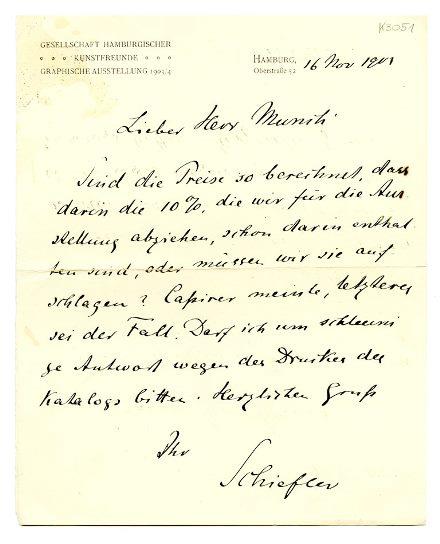 K3051
GESELLSCHAFT HAMBURGISCHER
KUNSTFREUNDE
GRAPHISCHE AUSSTELLUNG 1903/4
HAMBURG,
Oberstraße 52
16 Nov 1903
Lieber Herr Munch
Sind die Preise so berechnet, dass
darin die 10%, die wir für die Aus
stellung abziehen, schon darin enthal
ten sind, oder müssen wir sie auf
schlagen? Cassirer meinte, letzteres
sei der Fall. Darf ich um schleuni
ge Antwort wegen des Druckes des
Katalogs bitten. Herzlichen Gruß
Ihr
Schiefler